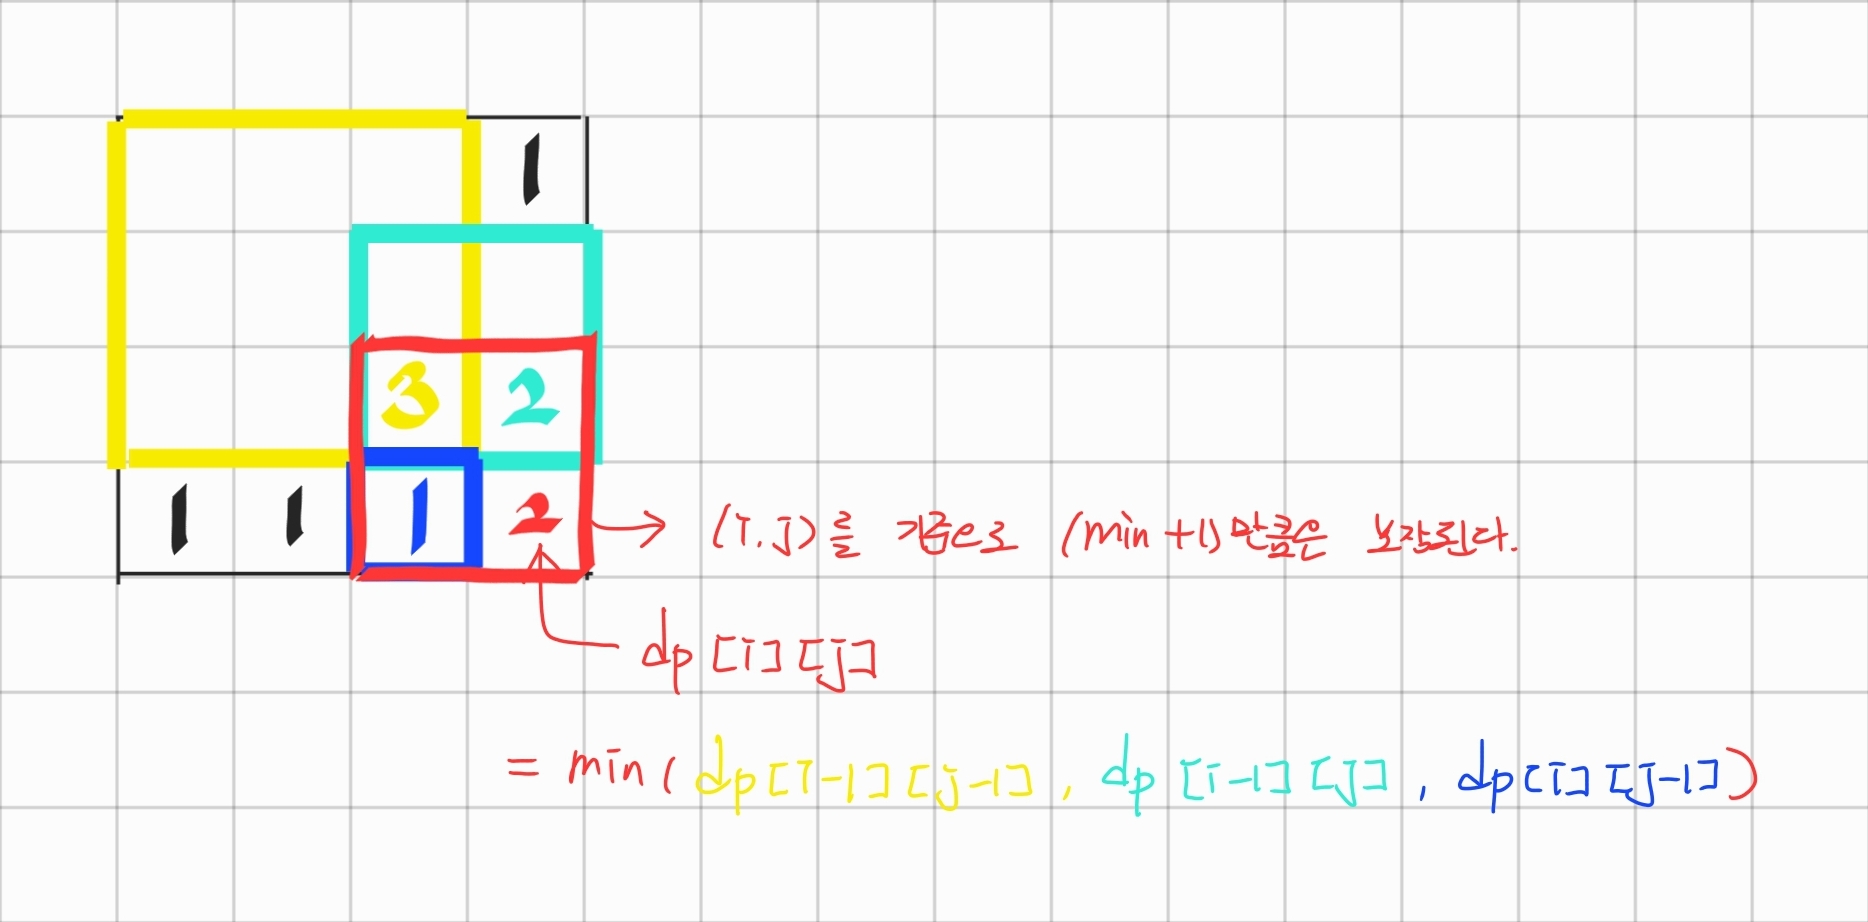 1
3 2
1 1 1 2 → (i,j)를 기준으로 (min +1) 만큼은 보장된다.
dp [i] [j]
= min( dp [i-1] [j-1] , dp [i-1] [j] , dp [i] [j-1] )